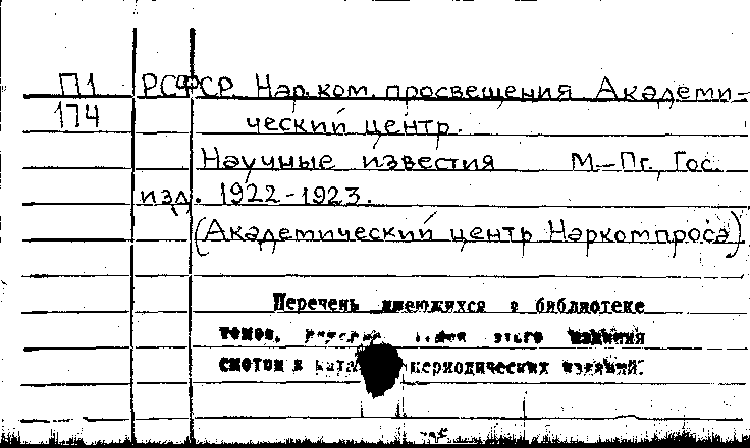 П1 РСФСР Нар.ком. просвещения Академи-
174 ческий центр.
Научные известия М.-Пг., Гос.
изд. 1922-1923.
(Академический центр Наркомпроса)
Перечень имеющихся в библиотеке
томов, этого издания
смотри в периодических изданий.